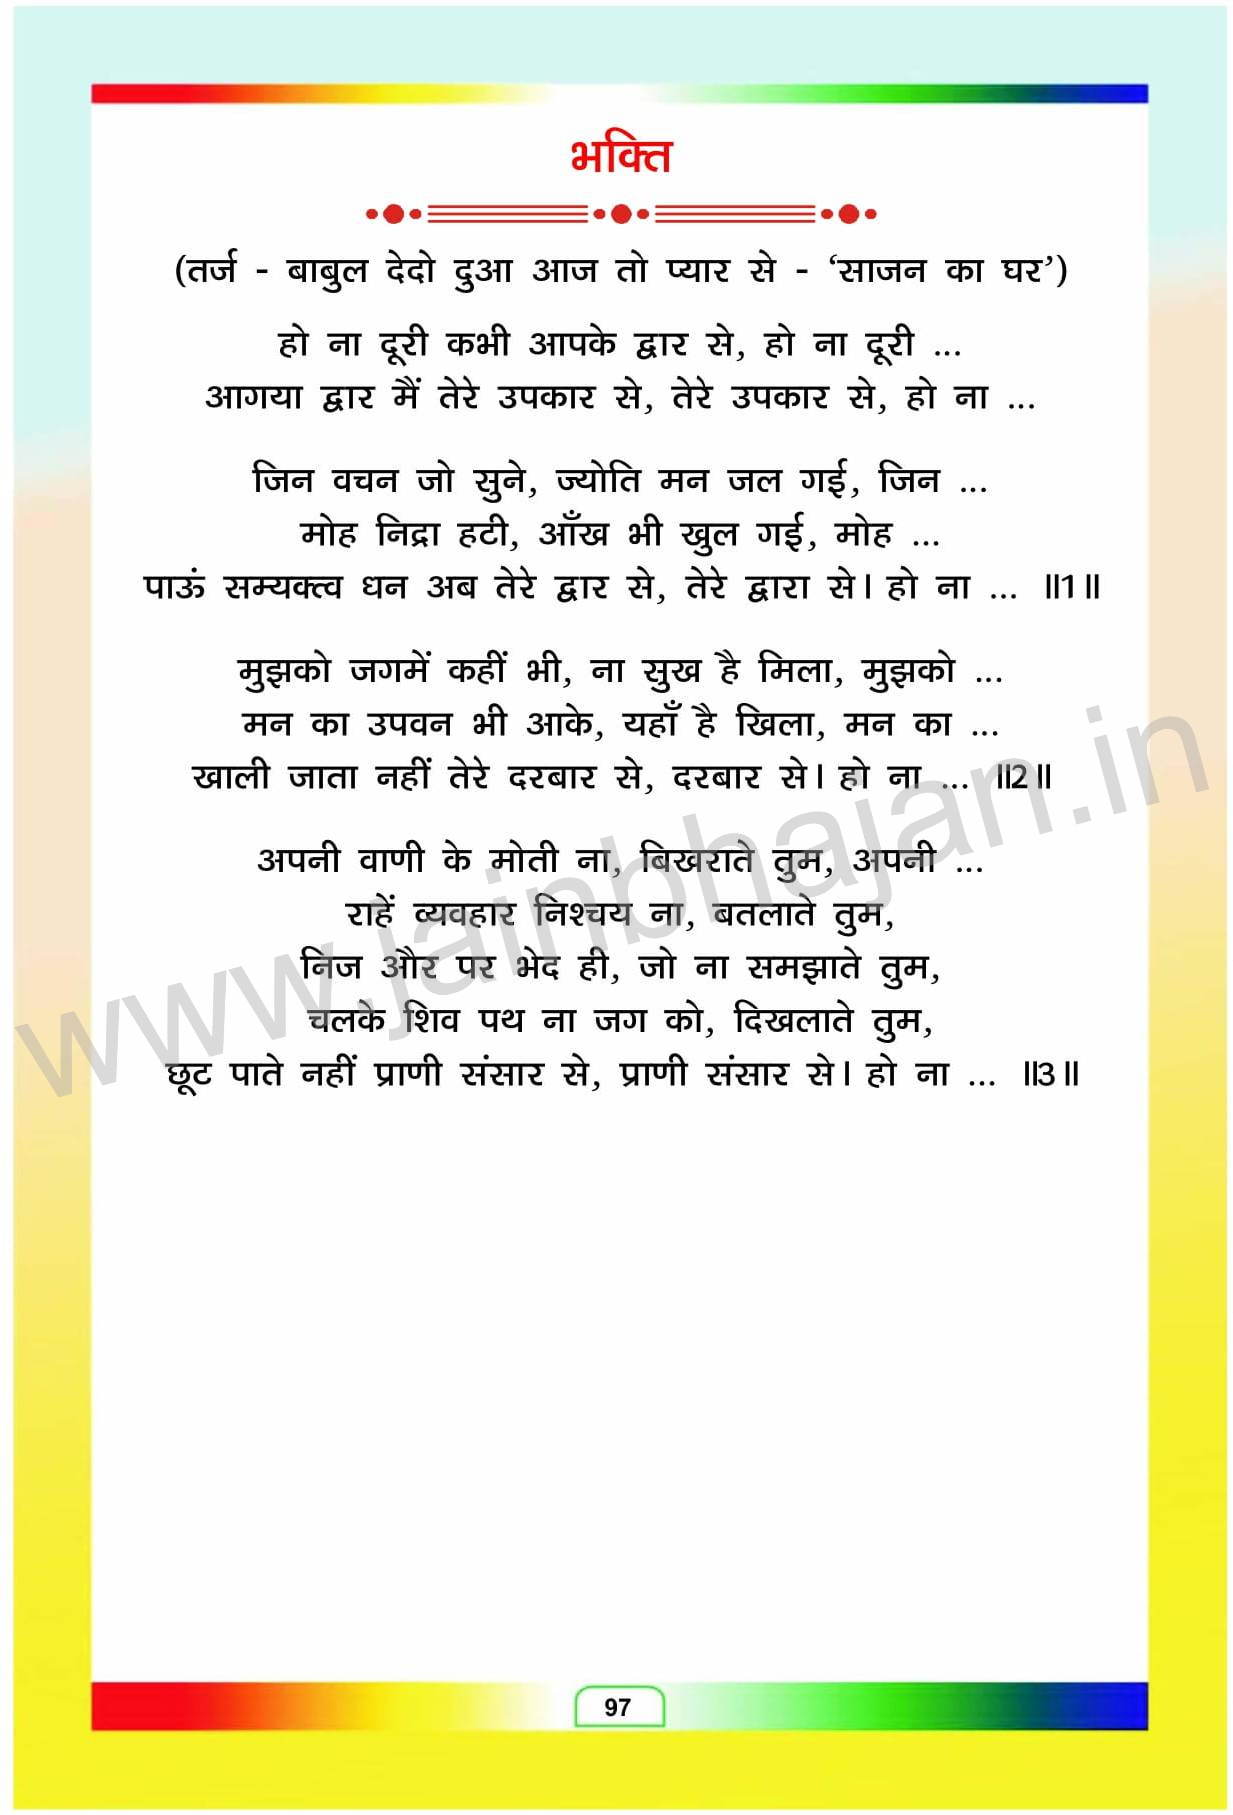 भक्ति
(तर्ज - बाबुल देदो दुआ आज तो प्यार से - ‘साजन का घर’)
हो ना दूरी कभी आपके द्वार से, हो ना दूरी ...
आगया द्वार मैं तेरे उपकार से, तेरे उपकार से, हो ना ...
जिन वचन जो सुने, ज्योति मन जल गई, जिन ...
मोह निद्रा हटी, आँख भी खुल गई, मोह ...
पाऊं सम्यक्त्व धन अब तेरे द्वार से, तेरे द्वारा से। हो ना ... ॥1॥
मुझको जगमें कहीं भी, ना सुख है मिला, मुझको ...
मन का उपवन भी आके, यहाँ है खिला, मन का ...
खाली जाता नहीं तेरे दरबार से, दरबार से। हो ना ... ॥2॥
अपनी वाणी के मोती ना, बिखराते तुम, अपनी ...
राहें व्यवहार निश्चय ना, बतलाते तुम,
निज और पर भेद ही, जो ना समझाते तुम,
चलके शिव पथ ना जग को, दिखलाते तुम,
छूट पाते नहीं प्राणी संसार से, प्राणी संसार से। हो ना ... ॥3॥
www.jainbhajan.in
97